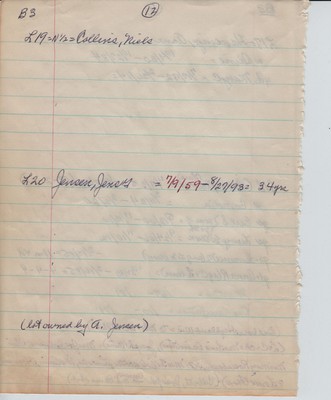 B3 (17)
L19 = N½ = Collins, Niels
L20 Jensen, Jens = 7/9/59 – 8/27/93 = 34 yrs
(lot owned by A. Jensen)